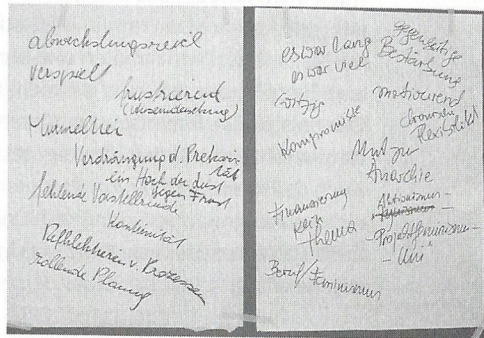 abwechslungsreich
verspielt
frustrierend
Murmeltier
Verdrängung d. Prekari-
tät
ein Hoch der Lust
gegen Frust
fehlende
Kontinuität
Reflektieren v. Prozessen
rollende Planung
es war lang
es war viel
gegenseitige
Bestärkung
motivierend
Kompromisse
chronische
Flexibilität
Mut zur
Anarchie
Finanzierung
kein
Thema
Aktionismus-
Projektfeminismus-
- Uni
Beruf/Feminismus